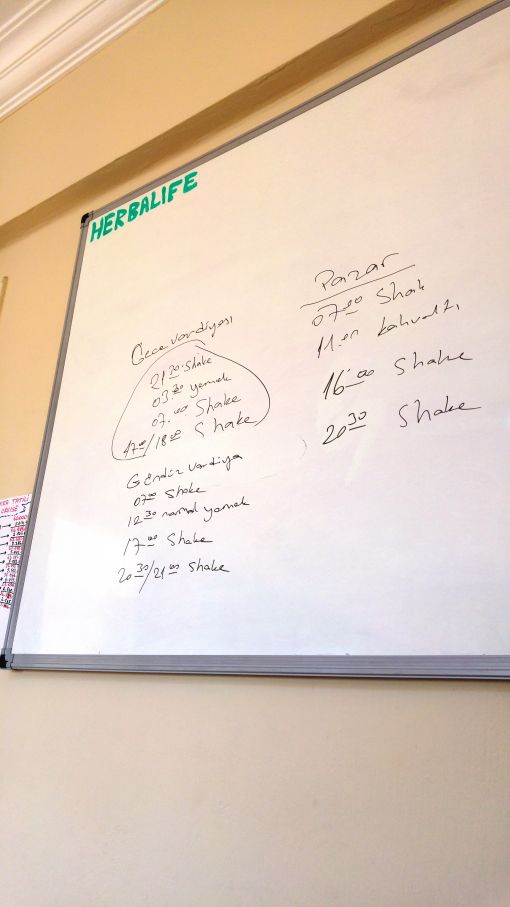 HERBALIFE
Gece vardiyası
21 30 Shake
03.30 yemek
07.00 Shake
17 00/18 00 Shake
Gündüz vardiya
07 00 Shake
12 30 normal yemek
17 00 Shake
20 30/21 00 Shake
Pazar
07 00 Shak
11.00 kahvaltı
16.00 Shake
20 30 Shake